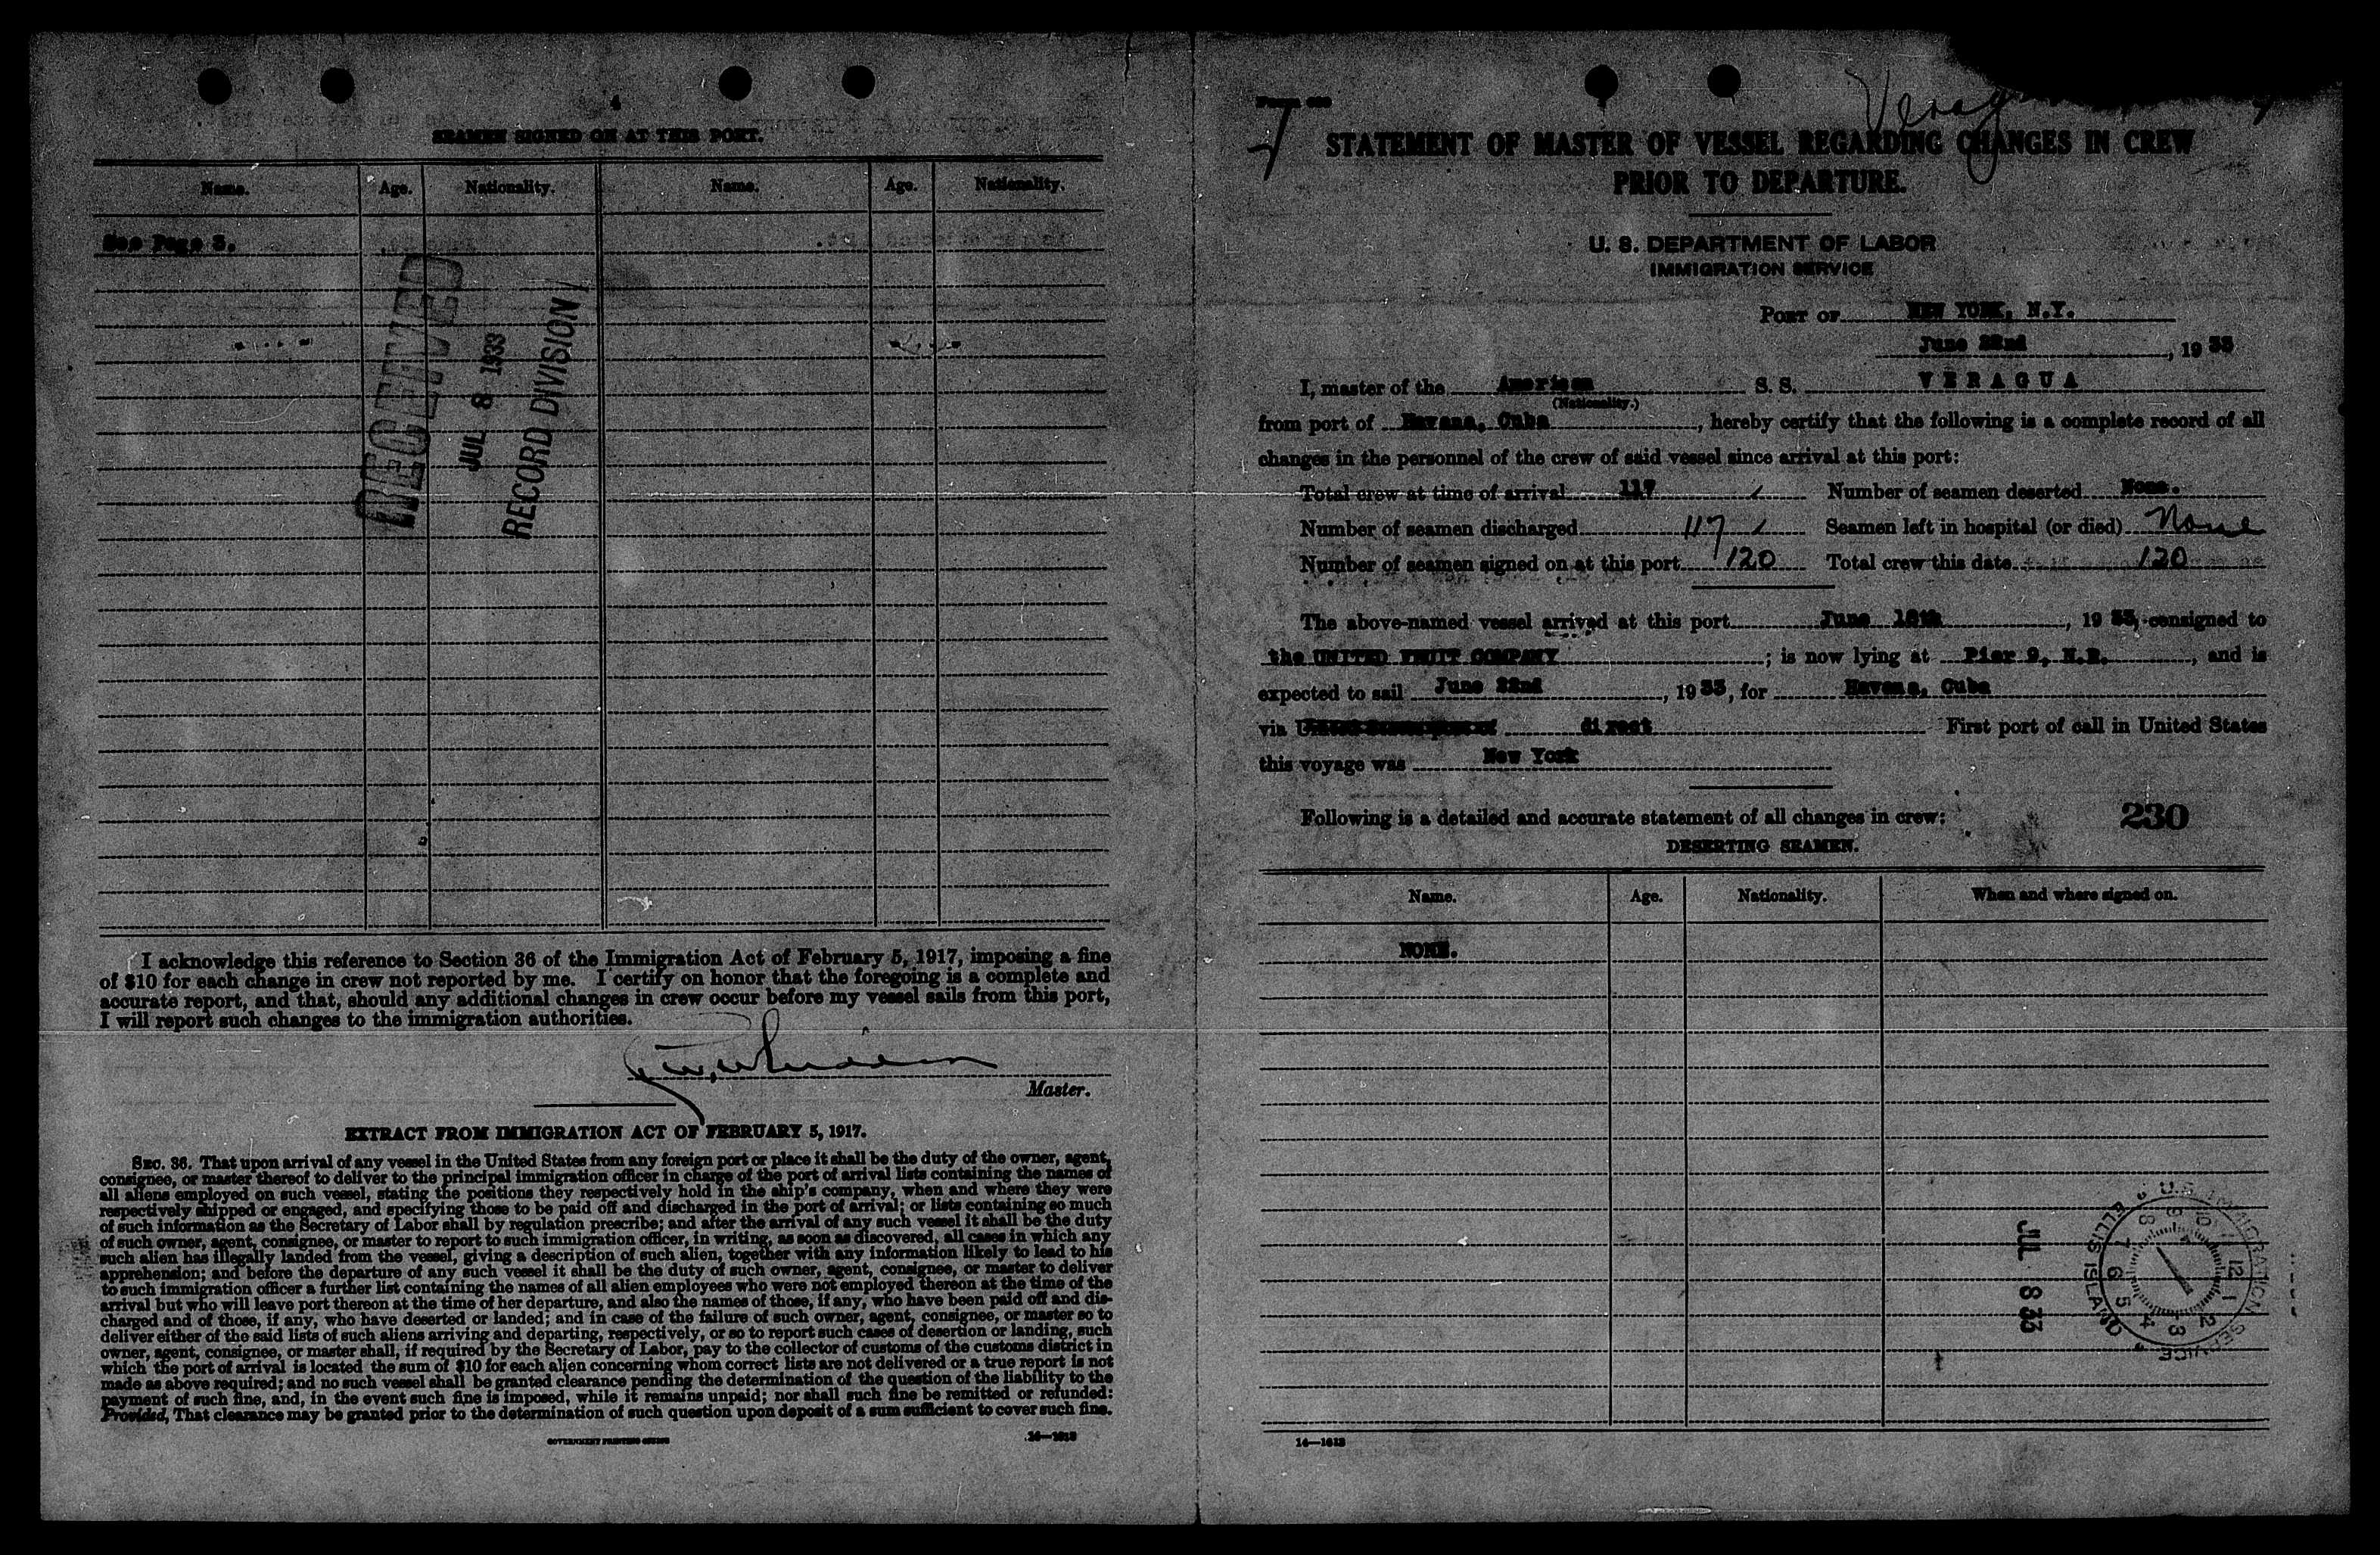 4
SEAMEN SIGNED ON AT THIS PORT.
Name. Age. Nationality. Name. Age. Nationality.
See Page 3.
RECEIVED
JUL 8 1933
RECORD DIVISION
I acknowledge this reference to Section 36 of the Immigration Act of February 5, 1917, imposing a fine
of $10 for each change in crew not reported by me. I certify on honor that the foregoing is a complete and
accurate report, and that, should any additional changes in crew occur before my vessel sails from this port,
I will report such changes to the immigration authorities.
Master.
EXTRACT FROM IMMIGRATION ACT OF FEBRUARY 5, 1917.
SEC. 36. That upon arrival of any vessel in the United States from any foreign port or place it shall be the duty of the owner, agent,
consignee, or master thereof to deliver to the principal immigration officer in charge of the port of arrival lists containing the names of
all aliens employed on such vessel, stating the positions they respectively hold in the ship's company, when and where they were
respectively shipped or engaged, and specifying those to be paid off and discharged in the port of arrival; or lists containing so much
of such information as the Secretary of Labor shall by regulation prescribe; and after the arrival of any such vessel it shall be the duty
of such owner, agent, consignee, or master to report to such immigration officer, in writing, as soon as discovered, all cases in which any
such alien has illegally landed from the vessel, giving a description of such alien, together with any information likely to lead to his
apprehension; and before the departure of any such vessel it shall be the duty of such owner, agent, consignee, or master to deliver
to such immigration officer a further list containing the names of all alien employees who were not employed thereon at the time of the
arrival but who will leave port thereon at the time of her departure, and also the names of those, if any, who have been paid off and dis-
charged and of those, if any, who have deserted or landed; and in case of the failure of such owner, agent, consignee, or master so to
deliver either of the said lists of such aliens arriving and departing, respectively, or so to report such cases of desertion or landing, such
owner, agent, consignee, or master shall, if required by the Secretary of Labor, pay to the collector of customs of the customs district in
which the port of arrival is located the sum of $10 for each alien concerning whom correct lists are not delivered or a true report is not
made as above required; and no such vessel shall be granted clearance pending the determination of the question of the liability to the
payment of such fine, and, in the event such fine is imposed, while it remains unpaid; nor shall such fine be remitted or refunded:
Provided, That clearance may be granted prior to the determination of such question upon deposit of a sum sufficient to cover such fine.
GOVERNMENT PRINTING OFFICE 14—1613
STATEMENT OF MASTER OF VESSEL REGARDING CHANGES IN CREW
PRIOR TO DEPARTURE.
U. S. DEPARTMENT OF LABOR
IMMIGRATION SERVICE
PORT OF NEW YORK, N.Y.
June 22nd, 1933
I, master of the American S. S. VERAGUA
(Nationality.)
from port of Havana, Cuba, hereby certify that the following is a complete record of all
changes in the personnel of the crew of said vessel since arrival at this port:
Total crew at time of arrival 117 Number of seamen deserted None.
Number of seamen discharged 117 Seamen left in hospital (or died) None
Number of seamen signed on at this port 120 Total crew this date 120
The above-named vessel arrived at this port June 18th, 1933, consigned to
the UNITED FRUIT COMPANY; is now lying at Pier 9, N.R., and is
expected to sail June 22nd, 1933, for Havana, Cuba
via direct First port of call in United States
this voyage was New York
Following is a detailed and accurate statement of all changes in crew:
230
DESERTING SEAMEN.
Name. Age. Nationality. When and where signed on.
NONE.
JUL 8 33
U.S. IMMIGRATION SERVICE ELLIS ISLAND
14—1613